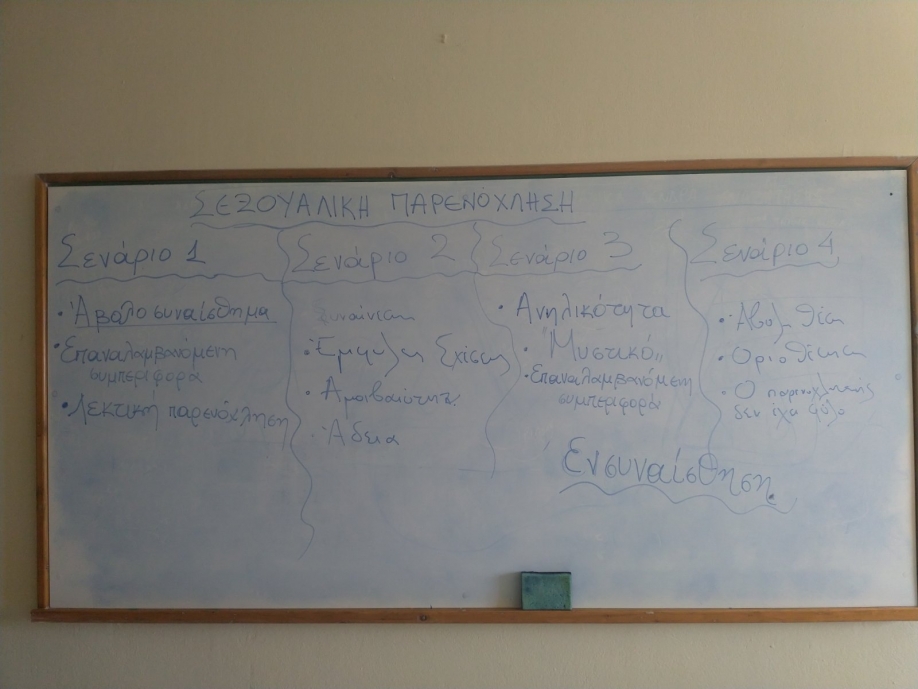 ΣΕΞΟΥΑΛΙΚΗ ΠΑΡΕΝΟΧΛΗΣΗ
Σενάριο 1
• Άβολο συναίσθημα
• Επαναλαμβανόμενη
συμπεριφορά
• Λεκτική παρενόχληση
Σενάριο 2
Συναίνεση
• Έμφυλες Σχέσεις
• Αμοιβαιότητα
• Άδεια
Σενάριο 3
• Ανηλικότητα
• "Μυστικό"
• Επαναλαμβανόμενη
συμπεριφορά
Σενάριο 4
• Άβολη θέση
• Οριοθέτηση
• Ο παρενοχλητής
δεν έχει φύλο
Ενσυναίσθηση